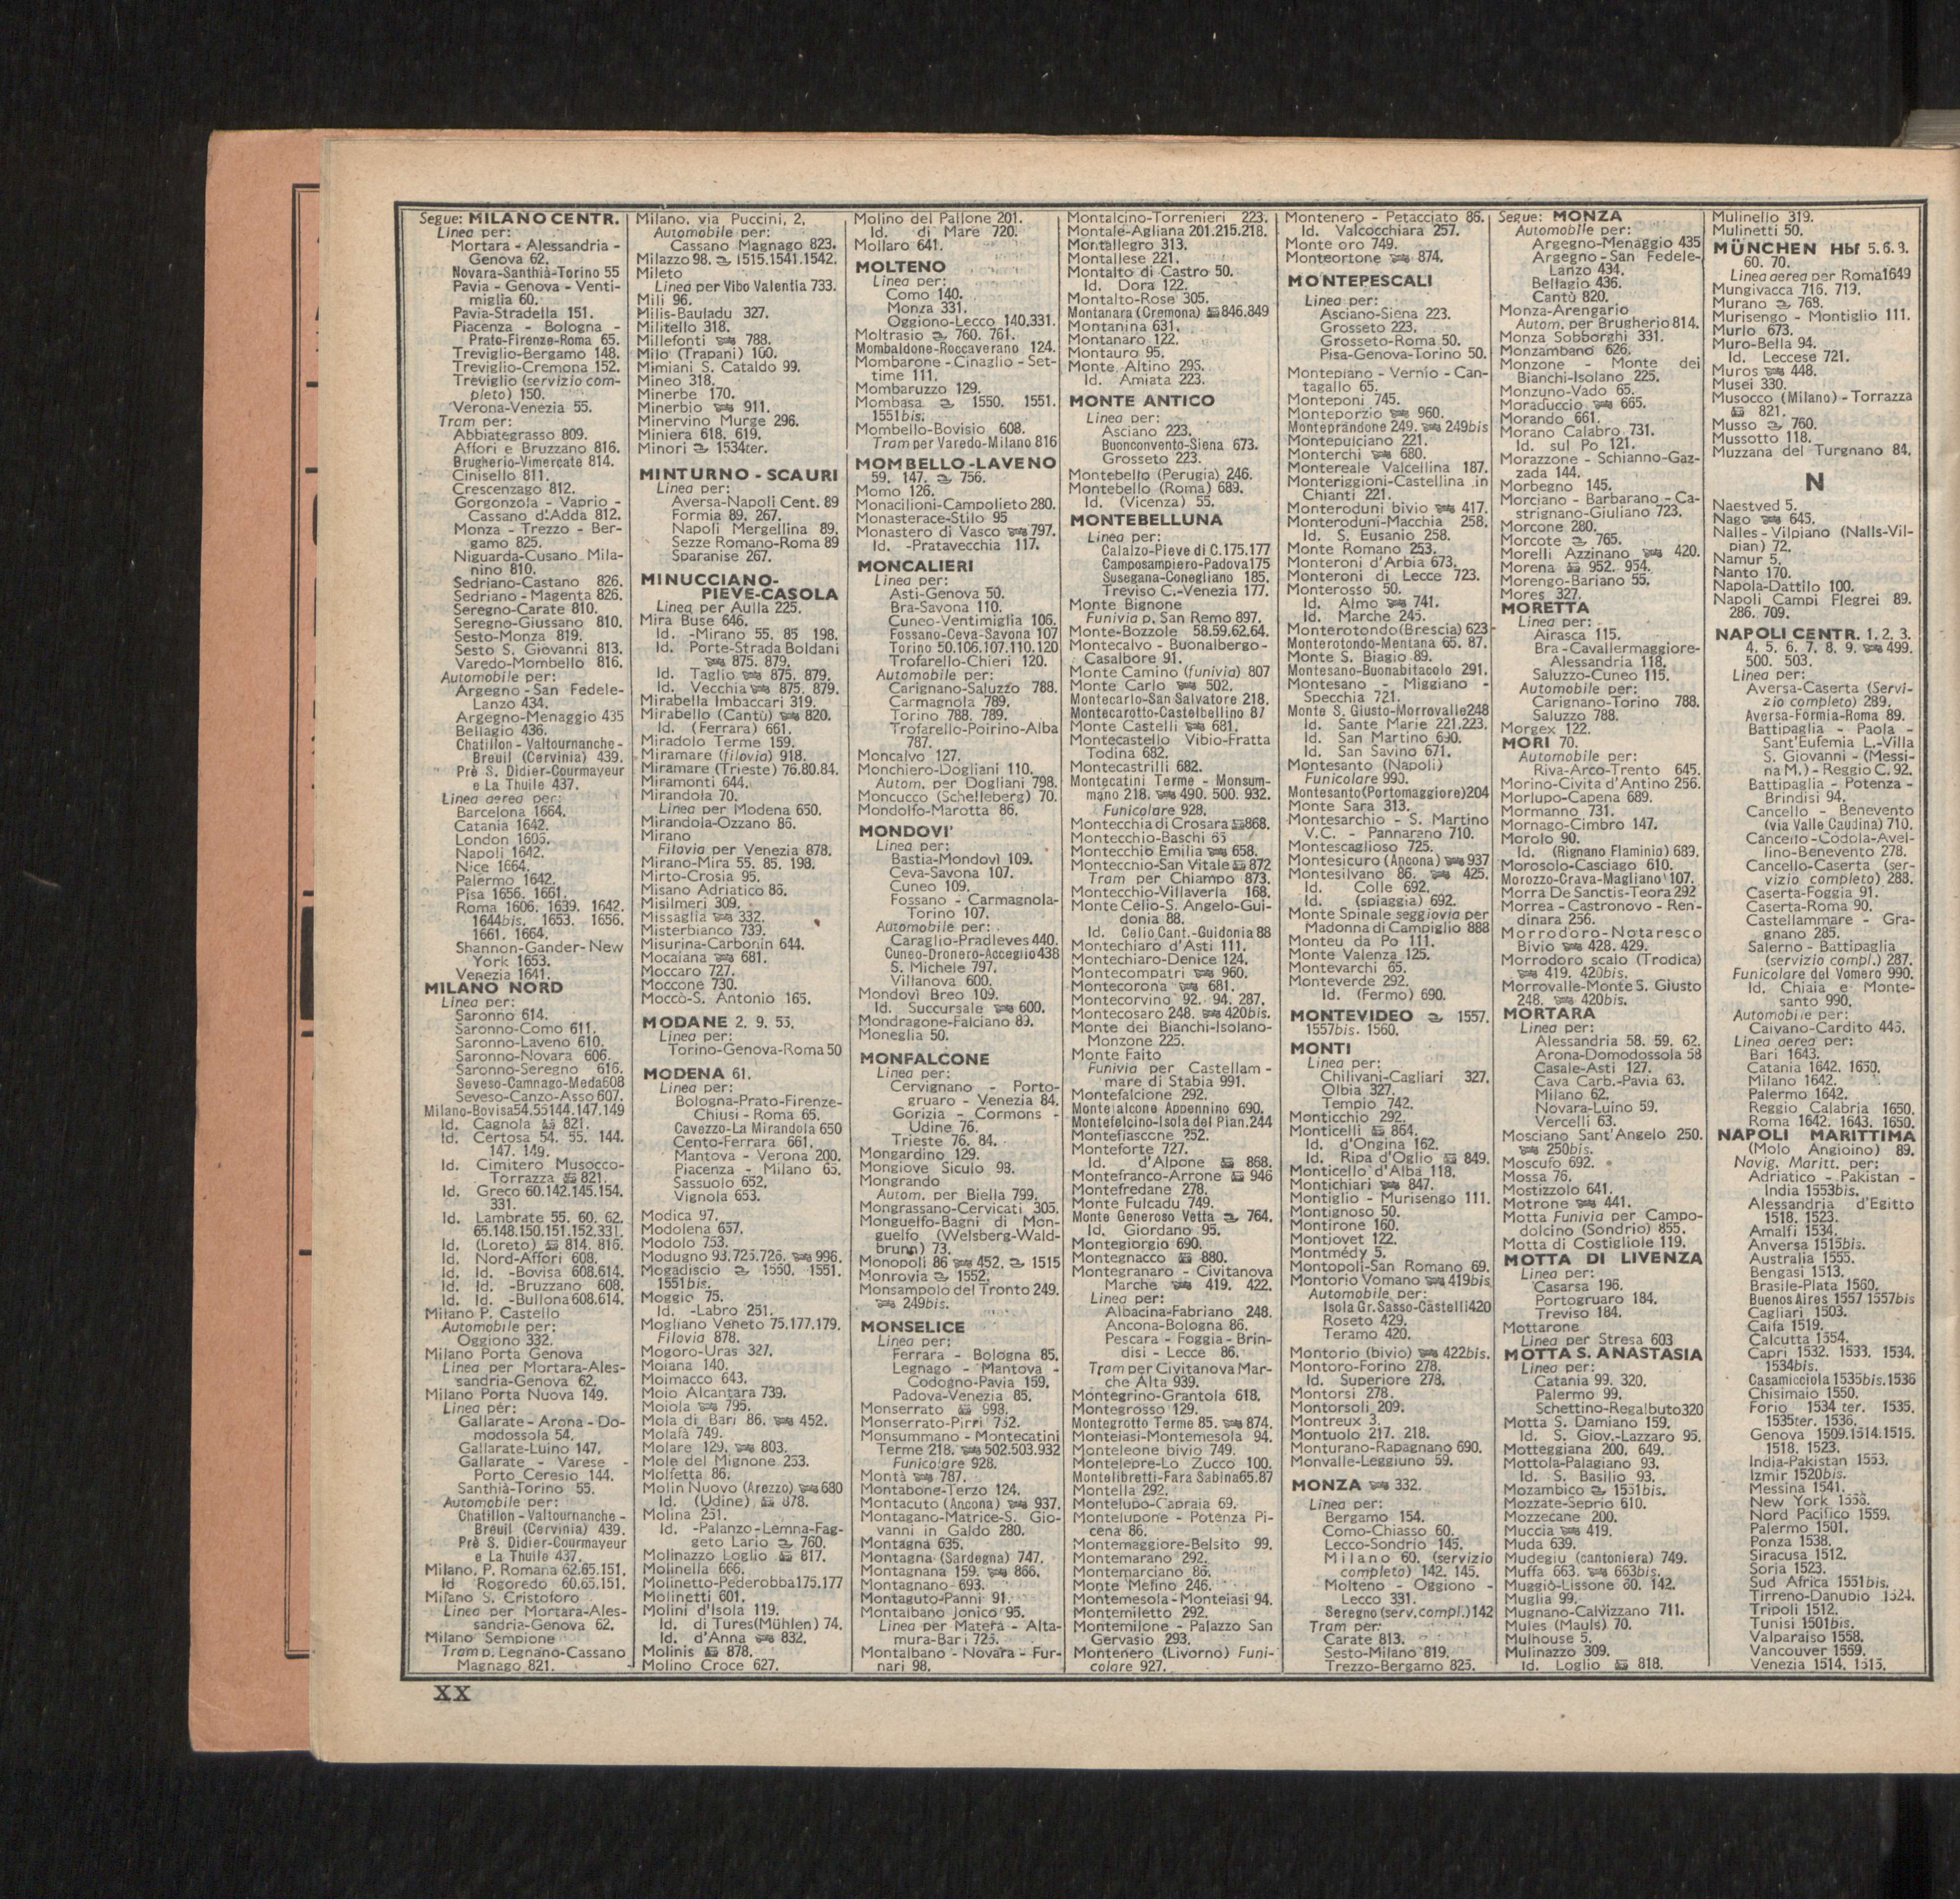 Segue: MILANO CENTR.
Linea per:
Mortara - Alessandria -
Genova 62.
Novara-Santhià-Torino 55
Pavia - Genova - Venti-
miglia 60.
Pavia-Stradella 151.
Piacenza - Bologna -
Prato-Firenze-Roma 65.
Treviglio-Bergamo 148.
Treviglio-Cremona 152.
Treviglio (servizio com-
pleto) 150.
Verona-Venezia 55.
Tram per:
Abbiategrasso 809.
Affori e Bruzzano 816.
Brugherio-Vimercate 814.
Cinisello 811.
Crescenzago 812.
Gorgonzola - Vaprio -
Cassano d'Adda 812.
Monza - Trezzo - Ber-
gamo 825.
Niguarda-Cusano Mila-
nino 810.
Sedriano-Castano 826.
Sedriano - Magenta 826.
Seregno-Carate 810.
Seregno-Giussano 810.
Sesto-Monza 819.
Sesto S. Giovanni 813.
Varedo-Mombello 816.
Automobile per:
Argegno-San Fedele-
Lanzo 434.
Argegno-Menaggio 435
Bellagio 436.
Chatillon-Valtournanche-
Breuil (Cervinia) 439.
Prè S. Didier-Courmayeur
e La Thuile 437.
Linea aerea per:
Barcelona 1664.
Catania 1642.
London 1605.
Napoli 1642.
Nice 1664.
Palermo 1642.
Pisa 1656. 1661.
Roma 1606. 1639. 1642.
1644bis. 1653. 1656.
1661. 1664.
Shannon-Gander-New
York 1653.
Venezia 1641.
MILANO NORD
Linea per:
Saronno 614.
Saronno-Como 611.
Saronno-Laveno 610.
Saronno-Novara 606.
Saronno-Seregno 616.
Seveso-Camnago-Meda608
Seveso-Canzo-Asso 607.
Milano-Bovisa54.55144.147.149
Id. Cagnola 821.
Id. Certosa 54. 55. 144.
147. 149.
Id. Cimitero Musocco-
Torrazza 821.
Id. Greco 60.142.145.154.
331.
Id. Lambrate 55. 60. 62.
65.148.150.151.152.331.
Id. (Loreto) 814. 816.
Id. Nord-Affori 608.
Id. Id. -Bovisa 608.614.
Id. Id. -Bruzzano 608.
Id. Id. -Bullona608.614.
Milano P. Castello
Automobile per:
Oggiono 332.
Milano Porta Genova
Linea per Mortara-Ales-
sandria-Genova 62.
Milano Porta Nuova 149.
Linea per:
Gallarate-Arona-Do-
modossola 54.
Gallarate-Luino 147.
Gallarate - Varese -
Porto Ceresio 144.
Santhià-Torino 55.
Automobile per:
Chatillon-Valtournanche-
Breuil (Cervinia) 439.
Prè S. Didier-Courmayeur
e La Thuile 437.
Milano, P. Romana 62.65.151.
Id Rogoredo 60.65.151.
Milano S. Cristoforo
Linea per Mortara-Ales-
sandria-Genova 62.
Milano Sempione
Tram p. Legnano-Cassano
Magnago 821.
Milano, via Puccini, 2,
Automobile per:
Cassano Magnago 823.
Milazzo 98. 1515.1541.1542.
Mileto
Linea per Vibo Valentia 733.
Mili 96.
Milis-Bauladu 327.
Militello 318.
Millefonti 788.
Milo (Trapani) 100.
Mimiani S. Cataldo 99.
Mineo 318.
Minerbe 170.
Minerbio 911.
Minervino Murge 296.
Miniera 618. 619.
Minori 1534ter.
MINTURNO - SCAURI
Linea per:
Aversa-Napoli Cent. 89
Formia 89. 267.
Napoli Mergellina 89.
Sezze Romano-Roma 89
Sparanise 267.
MINUCCIANO-
PIEVE-CASOLA
Linea per Aulla 225.
Mira Buse 646.
Id. -Mirano 55. 85 198.
Id. Porte-Strada Boldani
875. 879.
Id. Taglio 875. 879.
Id. Vecchia 875. 879.
Mirabella Imbaccari 319.
Mirabello (Cantù) 820.
Id. (Ferrara) 661.
Miradolo Terme 159.
Miramare (filovia) 918.
Miramare (Trieste) 76.80.84.
Miramonti 644.
Mirandola 70.
Linea per Modena 650.
Mirandola-Ozzano 86.
Mirano
Filovia per Venezia 878.
Mirano-Mira 55. 85. 198.
Mirto-Crosia 95.
Misano Adriatico 86.
Misilmeri 309.
Missaglia 332.
Misterbianco 739.
Misurina-Carbonin 644.
Mocaiana 681.
Moccaro 727.
Moccone 730.
Moccò-S. Antonio 165.
MODANE 2. 9. 55.
Linea per:
Torino-Genova-Roma 50
MODENA 61.
Linea per:
Bologna-Prato-Firenze-
Chiusi - Roma 65.
Cavezzo-La Mirandola 650
Cento-Ferrara 661.
Mantova - Verona 200.
Piacenza - Milano 65.
Sassuolo 652.
Vignola 653.
Modica 97.
Modolena 657.
Modolo 753.
Modugno 93.725.726. 996.
Mogadiscio 1550. 1551.
1551bis.
Moggio 75.
Id. -Labro 251.
Mogliano Veneto 75.177.179.
Filovia 878.
Mogoro-Uras 327.
Moiana 140.
Moimacco 643.
Moio Alcantara 739.
Moiola 795.
Mola di Bari 86. 452.
Molafà 749.
Molare 129. 803.
Mole del Mignone 253.
Molfetta 86.
Molin Nuovo (Arezzo) 680
Id. (Udine) 878.
Molina 251.
Id. -Palanzo-Lemna-Fag-
geto Lario 760.
Molinazzo Loglio 817.
Molinella 666.
Molinetto-Pederobba175.177
Molinetti 601.
Molini d'Isola 119.
Id. di Tures(Mühlen) 74.
Id. d'Anna 832.
Molinis 878.
Molino Croce 627.
Molino del Pallone 201.
Id. di Mare 720.
Mollaro 641.
MOLTENO
Linea per:
Como 140.
Monza 331.
Oggiono-Lecco 140.331.
Moltrasio 760. 761.
Mombaldone-Roccaverano 124.
Mombarone - Cinaglio - Set-
time 111.
Mombaruzzo 129.
Mombasa 1550. 1551.
1551bis.
Mombello-Bovisio 608.
Tram per Varedo-Milano 816
MOMBELLO-LAVENO
59. 147. 756.
Momo 126.
Monacilioni-Campolieto 280.
Monasterace-Stilo 95
Monastero di Vasco 797.
Id. -Pratavecchia 117.
MONCALIERI
Linea per:
Asti-Genova 50.
Bra-Savona 110.
Cuneo-Ventimiglia 106.
Fossano-Ceva-Savona 107
Torino 50.106.107.110.120
Trofarello-Chieri 120.
Automobile per:
Carignano-Saluzzo 788.
Carmagnola 789.
Torino 788. 789.
Trofarello-Poirino-Alba
787.
Moncalvo 127.
Monchiero-Dogliani 110.
Autom. per Dogliani 798.
Moncucco (Schelleberg) 70.
Mondolfo-Marotta 86.
MONDOVI'
Linea per:
Bastia-Mondovì 109.
Ceva-Savona 107.
Cuneo 109.
Fossano - Carmagnola-
Torino 107.
Automobile per:
Caraglio-Pradleves 440.
Cuneo-Dronero-Acceglio438
S. Michele 797.
Villanova 600.
Mondovì Breo 109.
Id. Succursale 600.
Mondragone-Falciano 89.
Moneglia 50.
MONFALCONE
Linea per:
Cervignano - Porto-
gruaro - Venezia 84.
Gorizia - Cormons -
Udine 76.
Trieste 76. 84.
Mongardino 129.
Mongiove Siculo 98.
Mongrando
Autom. per Biella 799.
Mongrassano-Cervicati 305.
Monguelfo-Bagni di Mon-
guelfo (Welsberg-Wald-
brunn) 73.
Monopoli 86 452. 1515
Monrovia 1552.
Monsampolo del Tronto 249.
249bis.
MONSELICE
Linea per:
Ferrara - Bologna 85.
Legnago - Mantova -
Codogno-Pavia 159.
Padova-Venezia 85.
Monserrato 998.
Monserrato-Pirri 752.
Monsummano - Montecatini
Terme 218. 502.503.932
Funicolare 928.
Montà 787.
Montabone-Terzo 124.
Montacuto (Ancona) 937.
Montagano-Matrice-S. Gio-
vanni in Galdo 280.
Montagna 635.
Montagna (Sardegna) 747.
Montagnana 159. 866.
Montagnano 693.
Montaguto-Panni 91.
Montalbano Jonico 95.
Linea per Matera - Alta-
mura-Bari 725.
Montalbano - Novara - Fur-
nari 98.
Montalcino-Torrenieri 223.
Montale-Agliana 201.215.218.
Montallegro 313.
Montallese 221.
Montalto di Castro 50.
Id. Dora 122.
Montalto-Rose 305.
Montanara (Cremona) 846.849
Montanina 631.
Montanaro 122.
Montauro 95.
Monte Altino 295.
Id. Amiata 223.
MONTE ANTICO
Linea per:
Asciano 223.
Buonconvento-Siena 673.
Grosseto 223.
Montebello (Perugia) 246.
Montebello (Roma) 689.
Id. (Vicenza) 55.
MONTEBELLUNA
Linea per:
Calalzo-Pieve di C.175.177
Camposampiero-Padova175
Susegana-Conegliano 185.
Treviso C.-Venezia 177.
Monte Bignone
Funivia p. San Remo 897.
Monte-Bozzole 58.59.62.64.
Montecalvo - Buonalbergo-
Casalbore 91.
Monte Camino (funivia) 807
Monte Carlo 502.
Montecarlo-San Salvatore 218.
Montecarotto-Castelbellino 87
Monte Castelli 681.
Montecastello Vibio-Fratta
Todina 682.
Montecastrilli 682.
Montecatini Terme - Monsum-
mano 218. 490. 500. 932.
Funicolare 928.
Montecchia di Crosara 868.
Montecchio-Baschi 65
Montecchio Emilia 658.
Montecchio-San Vitale 872
Tram per Chiampo 873.
Montecchio-Villaverla 168.
Monte Celio-S. Angelo-Gui-
donia 88.
Id. Celio Cant.-Guidonia 88
Montechiaro d'Asti 111.
Montechiaro-Denice 124.
Montecompatri 960.
Montecorona 681.
Montecorvino 92. 94. 287.
Montecosaro 248. 420bis.
Monte dei Bianchi-Isolano-
Monzone 225.
Monte Faito
Funivia per Castellam-
mare di Stabia 991.
Montefalcione 292.
Montefalcone Appennino 690.
Montefelcino-Isola del Pian.244
Montefiascone 252.
Monteforte 727.
Id. d'Alpone 868.
Montefranco-Arrone 946
Montefredane 278.
Monte Fulcadu 749.
Monte Generoso Vetta 764.
Id. Giordano 95.
Montegiorgio 690.
Montegnacco 880.
Montegranaro - Civitanova
Marche 419. 422.
Linea per:
Albacina-Fabriano 248.
Ancona-Bologna 86.
Pescara - Foggia - Brin-
disi - Lecce 86.
Tram per Civitanova Mar-
che Alta 939.
Montegrino-Grantola 618.
Montegrosso 129.
Montegrotto Terme 85. 874.
Monteiasi-Montemesola 94.
Monteleone bivio 749.
Montelepre-Lo Zucco 100.
Montelibretti-Fara Sabina65.87
Montella 292.
Montelupo-Capraia 69.
Montelupone - Potenza Pi-
cena 86.
Montemaggiore-Belsito 99.
Montemarano 292.
Montemarciano 86.
Monte Melino 246.
Montemesola - Monteiasi 94.
Montemiletto 292.
Montemilone - Palazzo San
Gervasio 293.
Montenero (Livorno) Funi-
colare 927.
Montenero - Petacciato 86.
Id. Valcocchiara 257.
Monte oro 749.
Monteortone 874.
MONTEPESCALI
Linea per:
Asciano-Siena 223.
Grosseto 223.
Grosseto-Roma 50.
Pisa-Genova-Torino 50.
Montepiano - Vernio - Can-
tagallo 65.
Monteponi 745.
Monteporzio 960.
Monteprandone 249. 249bis
Montepulciano 221.
Monterchi 680.
Montereale Valcellina 187.
Monteriggioni-Castellina in
Chianti 221.
Monteroduni bivio 417.
Monteroduni-Macchia 258.
Id. S. Eusanio 258.
Monte Romano 253.
Monteroni d'Arbia 673.
Monteroni di Lecce 723.
Monterosso 50.
Id. Almo 741.
Id. Marche 245.
Monterotondo(Brescia) 623
Monterotondo-Mentana 65. 87.
Monte S. Biagio 89.
Montesano-Buonabitacolo 291.
Montesano - Miggiano -
Specchia 721.
Monte S. Giusto-Morrovalle248
Id. Sante Marie 221.223.
Id. San Martino 690.
Id. San Savino 671.
Montesanto (Napoli)
Funicolare 990.
Montesanto(Portomaggiore)204
Monte Sara 313.
Montesarchio - S. Martino
V.C. - Pannarano 710.
Montescaglioso 725.
Montesicuro (Ancona) 937
Montesilvano 86. 425.
Id. Colle 692.
Id. (spiaggia) 692.
Monte Spinale seggiovia per
Madonna di Campiglio 888
Monteu da Po 111.
Monte Valenza 125.
Montevarchi 65.
Monteverde 292.
Id. (Fermo) 690.
MONTEVIDEO 1557.
1557bis. 1560.
MONTI
Linea per:
Chilivani-Cagliari 327.
Olbia 327.
Tempio 742.
Monticchio 292.
Monticelli 864.
Id. d'Ongina 162.
Id. Ripa d'Oglio 849.
Monticello d'Alba 118.
Montichiari 847.
Montiglio - Murisengo 111.
Montignoso 50.
Montirone 160.
Montjovet 122.
Montmédy 5.
Montopoli-San Romano 69.
Montorio Vomano 419bis
Automobile per:
Isola Gr.Sasso-Castelli420
Roseto 429.
Teramo 420.
Montorio (bivio) 422bis.
Montoro-Forino 278.
Id. Superiore 278.
Montorsi 278.
Montorsoli 209.
Montreux 3.
Montuolo 217. 218.
Monturano-Rapagnano 690.
Monvalle-Leggiuno 59.
MONZA 332.
Linea per:
Bergamo 154.
Como-Chiasso 60.
Lecco-Sondrio 145.
Milano 60. (servizio
completo) 142. 145.
Molteno - Oggiono -
Lecco 331.
Seregno (serv.compl.)142
Tram per:
Carate 813.
Sesto-Milano 819.
Trezzo-Bergamo 825.
Segue: MONZA
Automobile per:
Argegno-Menaggio 435
Argegno-San Fedele-
Lanzo 434.
Bellagio 436.
Cantù 820.
Monza-Arengario
Autom. per Brugherio 814.
Monza Sobborghi 331.
Monzambano 626.
Monzone - Monte dei
Bianchi-Isolano 225.
Monzuno-Vado 65.
Moraduccio 665.
Morando 661.
Morano Calabro 731.
Id. sul Po 121.
Morazzone - Schianno-Gaz-
zada 144.
Morbegno 145.
Morciano - Barbarano - Ca-
strignano-Giuliano 723.
Morcone 280.
Morcote 765.
Morelli Azzinano 420.
Morena 952. 954.
Morengo-Bariano 55.
Mores 327.
MORETTA
Linea per:
Airasca 115.
Bra - Cavallermaggiore-
Alessandria 118.
Saluzzo-Cuneo 115.
Automobile per:
Carignano-Torino 788.
Saluzzo 788.
Morgex 122.
MORI 70.
Automobile per:
Riva-Arco-Trento 645.
Morino-Civita d'Antino 256.
Morlupo-Capena 689.
Mormanno 731.
Mornago-Cimbro 147.
Morolo 90.
Id. (Rignano Flaminio) 689.
Morosolo-Casciago 610.
Morozzo-Crava-Magliano 107.
Morra De Sanctis-Teora 292
Morrea - Castronovo - Ren-
dinara 256.
Morrodoro-Notaresco
Bivio 428. 429.
Morrodoro scalo (Trodica)
419. 420bis.
Morrovalle-Monte S. Giusto
248. 420bis.
MORTARA
Linea per:
Alessandria 58. 59. 62.
Arona-Domodossola 58
Casale-Asti 127.
Cava Carb.-Pavia 63.
Milano 62.
Novara-Luino 59.
Vercelli 63.
Mosciano Sant'Angelo 250.
250bis.
Moscufo 692.
Mossa 76.
Mostizzolo 641.
Motrone 441.
Motta Funivia per Campo-
dolcino (Sondrio) 855.
Motta di Costigliole 119.
MOTTA DI LIVENZA
Linea per:
Casarsa 196.
Portogruaro 184.
Treviso 184.
Mottarone
Linea per Stresa 603
MOTTA S. ANASTASIA
Linea per:
Catania 99. 320.
Palermo 99.
Schettino-Regalbuto320
Motta S. Damiano 159.
Id. S. Giov.-Lazzaro 95.
Motteggiana 200. 649.
Mottola-Palagiano 93.
Id. S. Basilio 93.
Mozambico 1551bis.
Mozzate-Seprio 610.
Mozzecane 200.
Muccia 419.
Muda 639.
Mudegiu (cantoniera) 749.
Muffa 663. 663bis.
Muggiò-Lissone 60. 142.
Muglia 99.
Mugnano-Calvizzano 711.
Mules (Mauls) 70.
Mulhouse 5.
Mulinazzo 309.
Id. Loglio 818.
Mulinello 319.
Mulinetti 50.
MÜNCHEN Hbf 5.6.9.
60. 70.
Linea aerea per Roma1649
Mungivacca 716. 719.
Murano 768.
Murisengo - Montiglio 111.
Murlo 673.
Muro-Bella 94.
Id. Leccese 721.
Muros 448.
Musei 330.
Musocco (Milano) - Torrazza
821.
Musso 760.
Mussotto 118.
Muzzana del Turgnano 84.
N
Naestved 5.
Nago 645.
Nalles - Vilpiano (Nalls-Vil-
pian) 72.
Namur 5.
Nanto 170.
Napola-Dattilo 100.
Napoli Campi Flegrei 89.
286. 709.
NAPOLI CENTR. 1. 2. 3.
4. 5. 6. 7. 8. 9. 499.
500. 503.
Linea per:
Aversa-Caserta (Servi-
zio completo) 289.
Aversa-Formia-Roma 89.
Battipaglia - Paola -
Sant'Eufemia L.-Villa
S. Giovanni - (Messi-
na M.) - Reggio C. 92.
Battipaglia - Potenza -
Brindisi 94.
Cancello - Benevento
(via Valle Caudina) 710.
Cancello-Codola-Avel-
lino-Benevento 278.
Cancello-Caserta (ser-
vizio completo) 288.
Caserta-Foggia 91.
Caserta-Roma 90.
Castellammare - Gra-
gnano 285.
Salerno - Battipaglia
(servizio compl.) 287.
Funicolare del Vomero 990.
Id. Chiaia e Monte-
santo 990.
Automobile per:
Caivano-Cardito 445.
Linea aerea per:
Bari 1643.
Catania 1642. 1650.
Milano 1642.
Palermo 1642.
Reggio Calabria 1650.
Roma 1642. 1643. 1650.
NAPOLI MARITTIMA
(Molo Angioino) 89.
Navig. Maritt. per:
Adriatico - Pakistan -
India 1553bis.
Alessandria d'Egitto
1518. 1523.
Amalfi 1534.
Anversa 1515bis.
Australia 1555.
Bengasi 1513.
Brasile-Plata 1560.
Buenos Aires 1557 1557bis
Cagliari 1503.
Caifa 1519.
Calcutta 1554.
Capri 1532. 1533. 1534.
1534bis.
Casamicciola 1535bis.1536
Chisimaio 1550.
Forio 1534 ter. 1535.
1535ter. 1536.
Genova 1509.1514.1515.
1518. 1523.
India-Pakistan 1553.
Izmir 1520bis.
Messina 1541.
New York 1556.
Nord Pacifico 1559.
Palermo 1501.
Ponza 1538.
Siracusa 1512.
Soria 1523.
Sud Africa 1551bis.
Tirreno-Danubio 1524.
Tripoli 1512.
Tunisi 1501bis.
Valparaiso 1558.
Vancouver 1559.
Venezia 1514. 1515.
XX